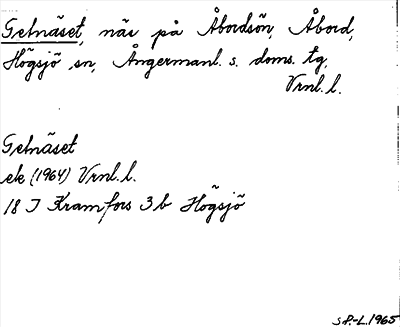 Getnäset, näs på Åbordsön, Åbord,
Högsjö sn, Ångermanl. s. doms. tg,
Vrnl. l.
Getnäset
ek (1964) Vrnl. l.
18 I Kramfors 3 b Högsjö
SP.-L. 1965